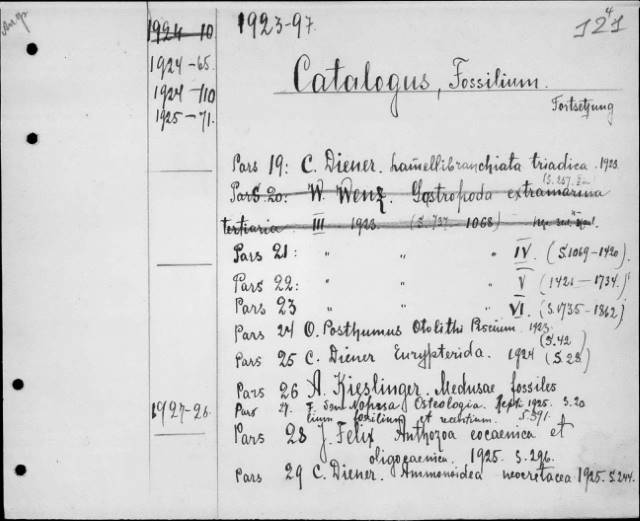 1923-97.
4
121
1924-10
1924-65.
1924-110
1925-71.
Catalogus, Fossilium.
Fortsetzung
Pars 19: C. Diener. Lamellibranchiata triadica. 1923.
(S. 257.
Pars 20: W. Wenz. Gastropoda extramarina
tertiaria III 1923. (S. 737-1068)
Pars 21: " " " IV. (S. 1069-1420).
Pars 22: " " " V (1421-1734.)
Pars 23 " " " VI. (S. 1735-1862)
Pars 24 O. Posthumus Otolithi Piscium. 1923.
(S. 42)
Pars 25 C. Diener Eurypterida. 1924 (S. 28)
Pars 26 A. Kieslinger. Medusae fossiles
1927-26.
Pars 27. F. Nopcsa Osteologia Rept. 1925. S. 20
lium fossilium et recentium. S. 391.
Pars 28 J. Felix Anthozoa eocaenica et
oligocaenica. 1925. S. 296.
Pars 29 C. Diener. Ammonoidea neocretacea 1925. S. 244.